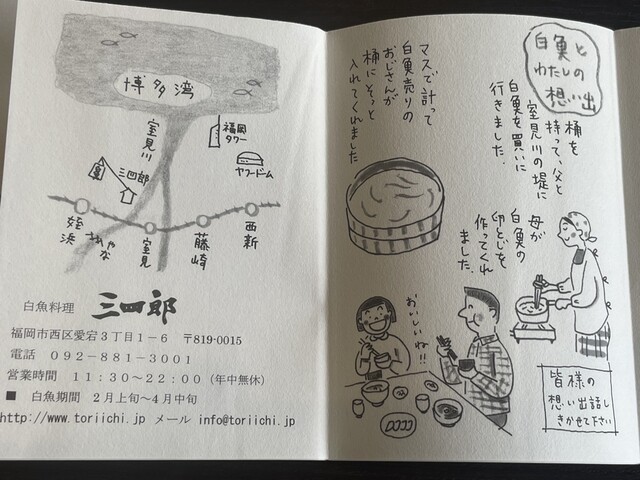 博多湾
室見川
福岡
タワー
ヤフードーム
三四郎
姪
浜
室見
藤崎
西新
白魚料理 三四郎
福岡市西区愛宕3丁目1-6 〒819-0015
電話 092-881-3001
営業時間 11:30~22:00 (年中無休)
■ 白魚期間 2月上旬~4月中旬
http://www.toriichi.jp メール info@toriichi.jp
白魚と
わたしの
想い出
桶を
持って、父と
室見川の堤に
白魚を買いに
行きました。
マスで計って
白魚売りの
おじさんが
桶にそっと
入れてくれました
母が
白魚の
卵とじを
作ってくれ
ました。
おいしいね!!
皆様の
想い出話し
きかせて下さい